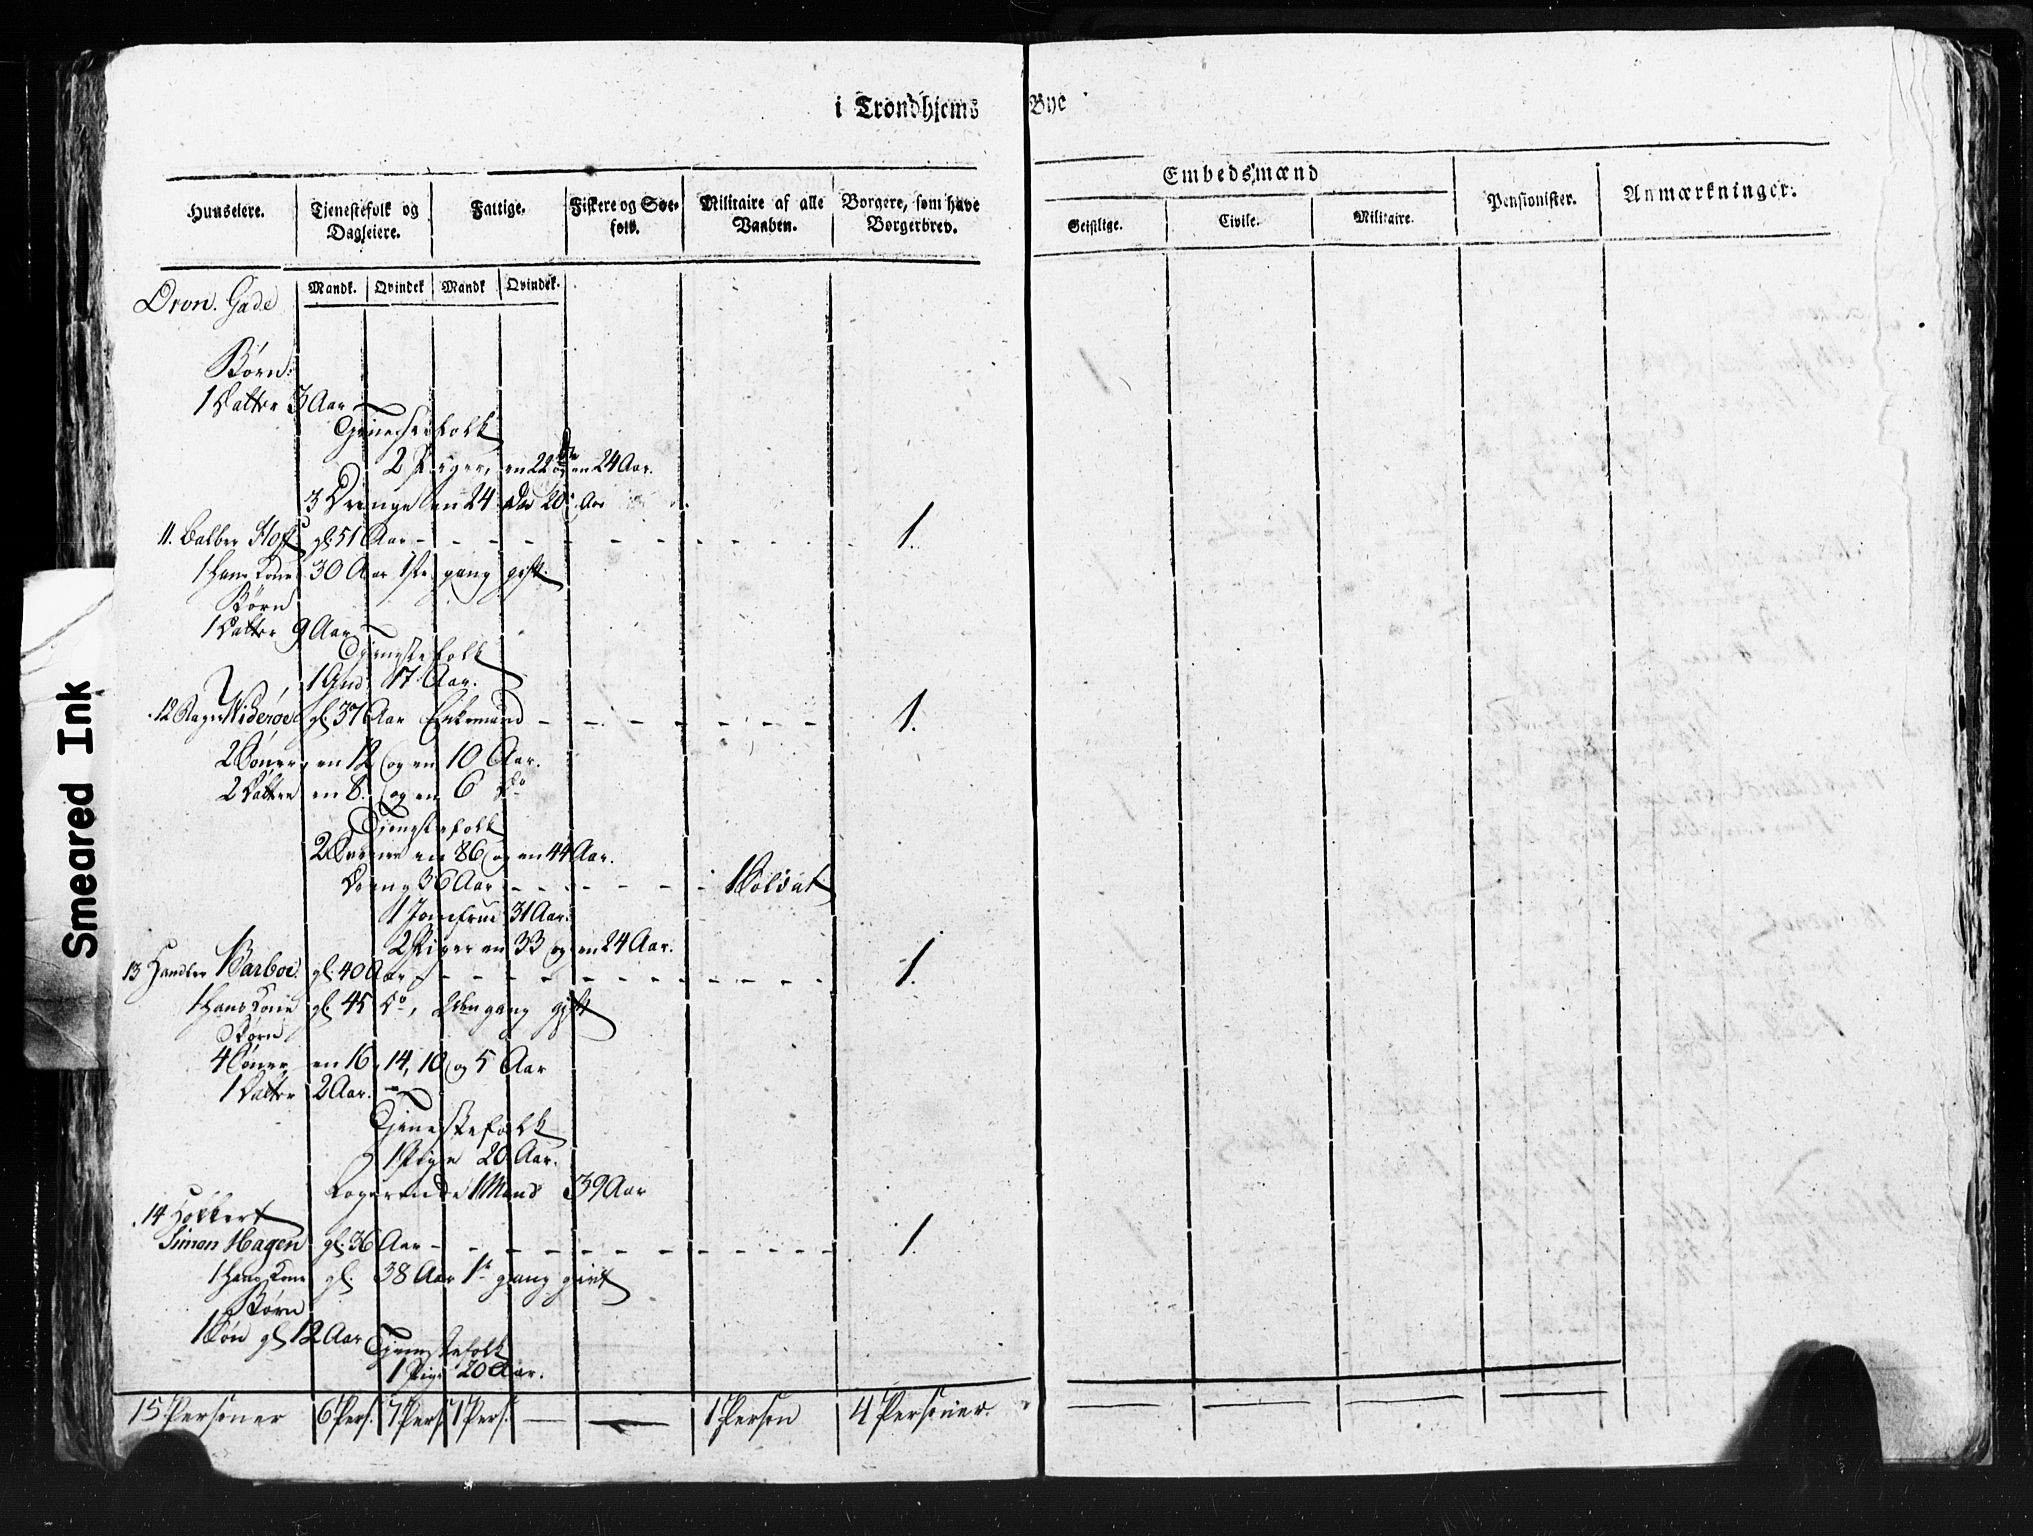 i Trondhjems Bye
Huuseiere.
Tjenestefolk og Dagleiere.
Fattige.
Fiskere og Søe-folk.
Militaire af alle Vaaben.
Borgere, som have Borgerbrev.
Embedsmænd
Geistlige.
Civile.
Militaire.
Pensionister.
Anmærkninger.
Mandk. Qvindek Mandk Qvindek.
Dron. Gade
Børn.
1 Datter 3 Aar
Tjenestefolk
2 Piger, en 22 og en 24 Aar.
3 Drenge en 24 20 Aar
11. Hoff gl. 51 Aar - - - 1.
1 Hans Kone 30 Aar 1ste gang gift.
Børn
1 Datter 9 Aar
Tjenestefolk
1 17 Aar.
12 Widerøe gl. 37 Aar Enkemand - - - 1.
2 Sønner, en 12 og en 10 Aar.
2 Døttre en 8. og en 6 do
Tjenestefolk
2 en 86 og en 44 Aar.
Dreng 36 Aar - - - 1 Soldat
1 Jomfrue 31 Aar.
2 Piger en 33 og en 24 Aar.
13 Handler Barboe. gl. 40 Aar - - - 1.
1 Hans Kone gl. 45 do, gang gift
Børn
4 Sønner en 16, 14, 10 og 5 Aar
1 Datter 2 Aar.
Tjenestefolk
1 Pige 20 Aar.
Logerende 1 Mand 39 Aar
14
Simon Hagen gl. 36 Aar - - - 1.
1 Hans Kone gl. 38 Aar 1te gang gift
Børn
1 Søn gl. 12 Aar
Tjenestefolk
1 Pige 20 Aar.
15 Personer 6 Pers. 7 Pers. 1 Pers. — — 1 Person 4 Personer.
Smeared Ink